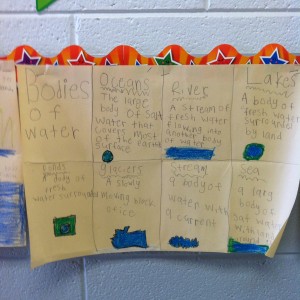 Bodies
of
water
Oceans
The large
body of Salt
water that
covers most
of the earth
surface
River
A stream of
fresh water
flowing into
another body
of water
Lakes
A body of
fresh water
surrounded
by land
A body of
fresh
water
glaciers
A slowly
moving
of ice
Stream
a body of
water with
a current
Sea
a larg
body of
salt water
with land